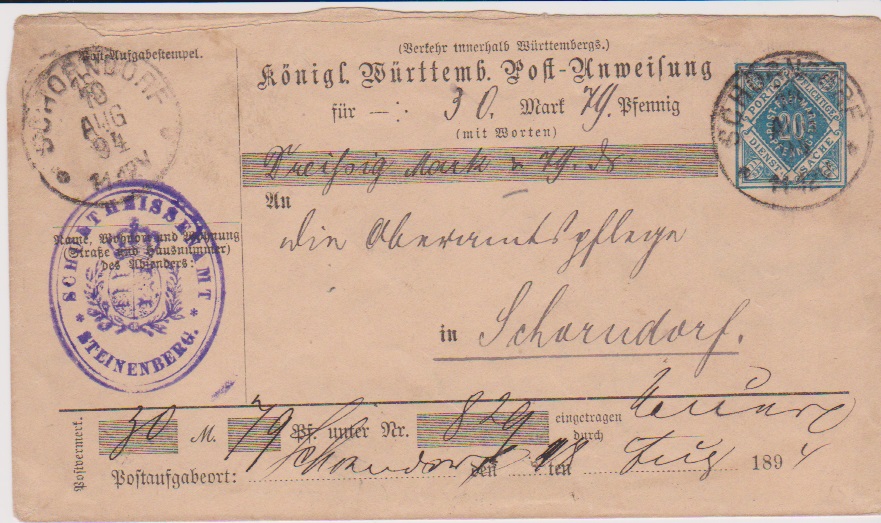 (Verkehr innerhalb Württembergs.)
Post-Aufgabestempel.
Königl. Württemb. Post-Anweisung
für —: 30. Mark 79. Pfennig
(mit Worten)
Dreißig Mark 79. ds.
An
die Oberamtspflege
in Schorndorf.
SCHORNDORF
AUG
94
SCHORNDORF
20
DIENSTSACHE
Name, Wohnort und Wohnung
(Straße und Hausnummer)
des Absenders:
SCHULTHEISSENAMT
* STEINENBERG. *
Postvermerk.
30 M. 79 Pf. unter Nr. 829 eingetragen
durch
Postaufgabeort: Schorndorf den 18 ten Aug 1894